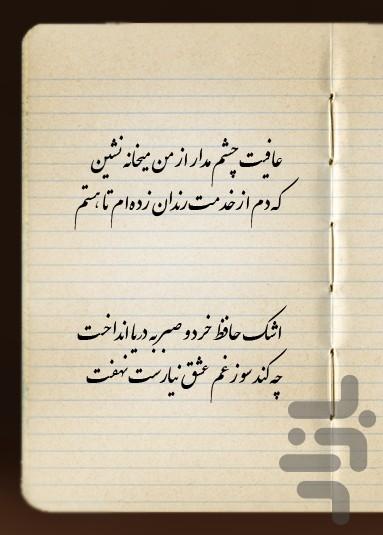 عافیت چشم مدار از من میخانه نشین
که دم از خدمت رندان زده‌ام تا هستم
اشک حافظ خرد و صبر به دریا انداخت
چه کند سوز غم عشق نیارست نهفت
بازار